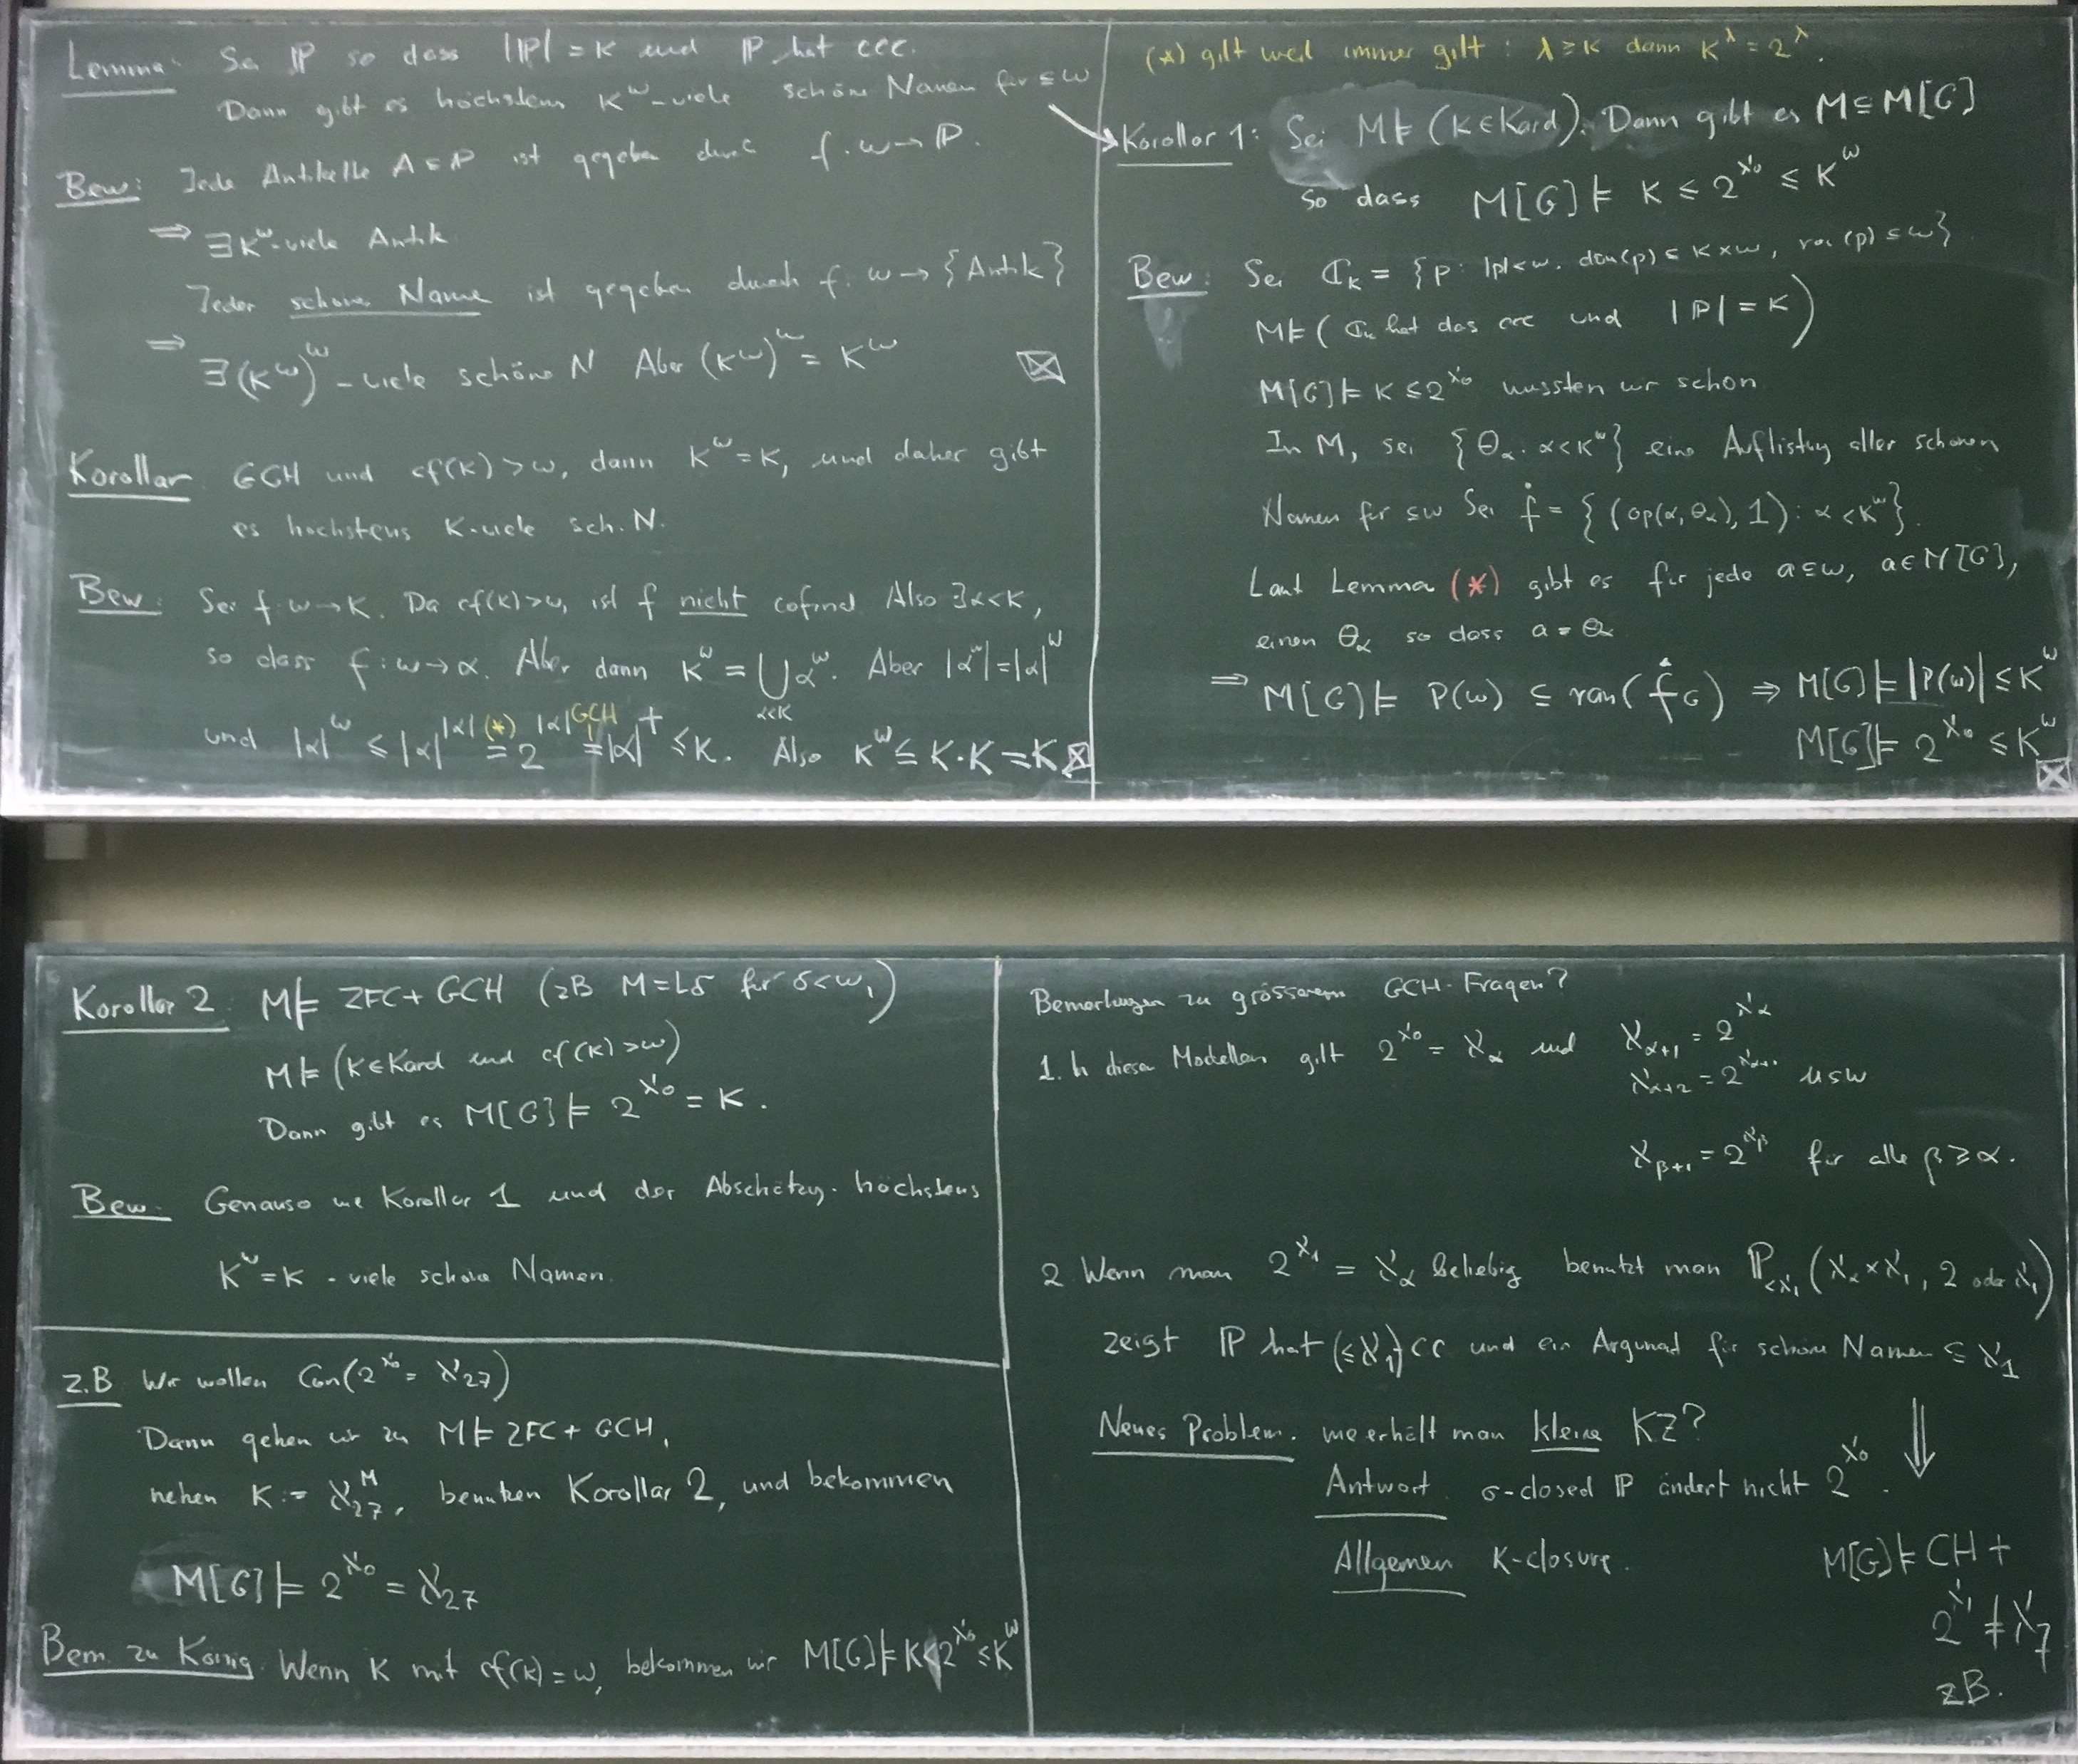 Lemma: Sei ℙ so dass |ℙ| = κ und ℙ hat ccc.
Dann gibt es höchstens κ^ω-viele schöne Namen für ⊆ ω
Bew: Jede Antikette A ⊆ ℙ ist gegeben durch f: ω → ℙ.
⇒ ∃ κ^ω-viele Antik
Jeder schöne Name ist gegeben durch f: ω → {Antik}
⇒ ∃ (κ^ω)^ω - viele schöne N Aber (κ^ω)^ω = κ^ω ⊠
Korollar GCH und cf(κ) > ω, dann κ^ω = κ, und daher gibt
es höchstens κ-viele sch. N.
Bew: Sei f: ω → κ. Da cf(κ) > ω, ist f nicht cofinal Also ∃α < κ,
so dass f: ω → α. Aber dann κ^ω = ⋃_{α<κ} α^ω. Aber |α^ω| = |α|^ω
und |α|^ω ≤ |α|^|α| =(*) 2^|α| =GCH |α|^+ ≤ κ. Also κ^ω ≤ κ·κ = κ ⊠
(*) gilt weil immer gilt: λ ≥ κ dann κ^λ = 2^λ.
Korollar 1: Sei M ⊨ (κ ∈ Kard). Dann gibt es M ⊆ M[G]
so dass M[G] ⊨ κ ≤ 2^ℵ₀ ≤ κ^ω
Bew: Sei ℂ_κ = {p: |p| < ω, dom(p) ⊆ κ × ω, ran(p) ⊆ ω}
M ⊨ (ℂ_κ hat das ccc und |ℙ| = κ)
M[G] ⊨ κ ≤ 2^ℵ₀ wussten wir schon
In M, sei {θ_α: α < κ^ω} eine Auflistung aller schönen
Namen für ⊆ ω Sei ḟ = {(op(α, θ_α), 1): α < κ^ω}.
Laut Lemma (*) gibt es für jede a ⊆ ω, a ∈ M[G],
einen θ_α so dass a = θ_α
⇒ M[G] ⊨ P(ω) ⊆ ran(ḟ_G) ⇒ M[G] ⊨ |P(ω)| ≤ κ^ω
M[G] ⊨ 2^ℵ₀ ≤ κ^ω ⊠
Korollar 2: M ⊨ ZFC + GCH (zB M = Lδ für δ < ω₁)
M ⊨ (κ ∈ Kard und cf(κ) > ω)
Dann gibt es M[G] ⊨ 2^ℵ₀ = κ.
Bew. Genauso wie Korollar 1 und der Abschätzg. höchstens
κ^ω = κ - viele schöne Namen.
z.B Wir wollen Con(2^ℵ₀ = ℵ₂₇)
Dann gehen wir zu M ⊨ ZFC + GCH,
nehmen κ := ℵ₂₇^M, benutzen Korollar 2, und bekommen
M[G] ⊨ 2^ℵ₀ = ℵ₂₇
Bem. zu König. Wenn κ mit cf(κ) = ω, bekommen wir M[G] ⊨ κ < 2^ℵ₀ ≤ κ^ω
Bemerkungen zu grösseren GCH-Fragen?
1. In diesen Modellen gilt 2^ℵ₀ = ℵ_α und ℵ_{α+1} = 2^ℵ_α
ℵ_{α+2} = 2^ℵ_{α+1} usw
ℵ_{β+1} = 2^ℵ_β für alle β ≥ α.
2 Wenn man 2^ℵ₁ = ℵ_α beliebig benutzt man ℙ_{<ℵ₁}(ℵ_α × ℵ₁, 2 oder ℵ₁)
zeigt ℙ hat (≤ℵ₁)cc und ein Argument für schöne Namen ⊆ ℵ₁
Neues Problem. wie erhält man kleine KZ? ⇓
Antwort. σ-closed ℙ ändert nicht 2^ℵ₀.
Allgemein κ-closure.
M[G] ⊨ CH +
2^ℵ₁ ≠ ℵ₇
zB.